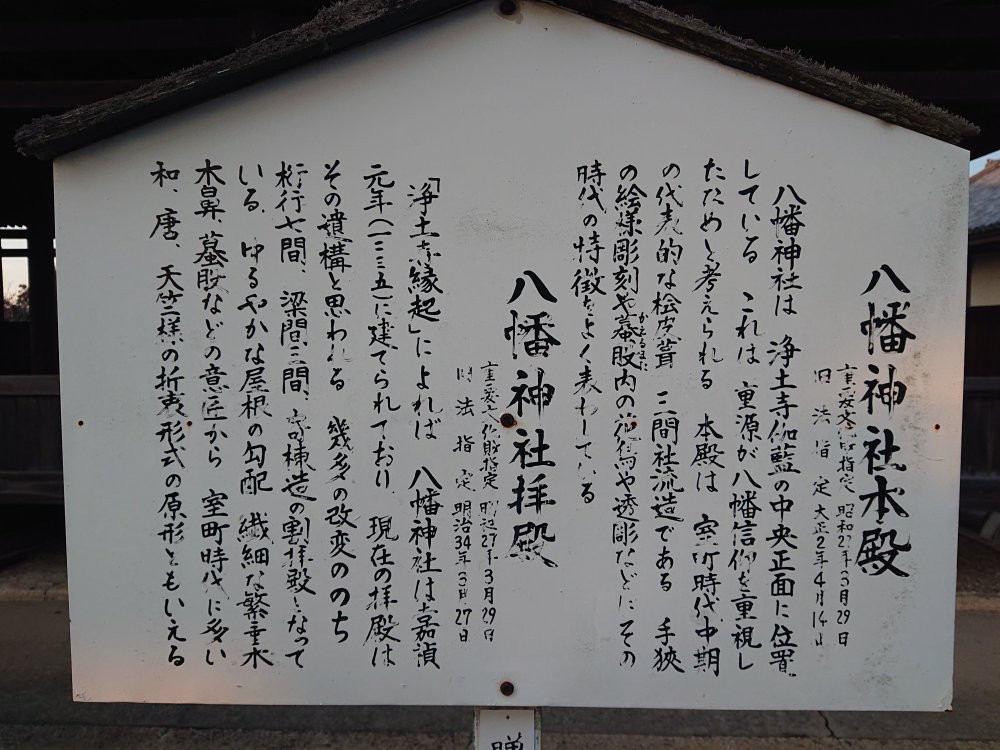 八幡神社本殿
重要文化財指定 昭和27年3月29日
旧法指定 大正2年4月14日
八幡神社は 浄土寺伽藍の中央正面に位置
している これは 重源が八幡信仰を重視し
たためと考えられる 本殿は 室町時代中期
の代表的な桧皮葺 三間社流造である 手狭
の絵様彫刻や蟇股内の 透彫などにその
かえるまた
時代の特徴をよく表わしている
八幡神社拝殿
重要文化財指定 昭和27年3月29日
旧法指定 明治34年3月27日
「浄土寺縁起」によれば 八幡神社は嘉禎
元年(一二三五)に建てられており 現在の拝殿は
その遺構と思われる 幾多の改変ののち
桁行七間、梁間三間、寄棟造の割拝殿となって
いる、ゆるやかな屋根の勾配 繊細な繁垂木
木鼻、蟇股などの意匠から 室町時代に多い
和、唐、天竺様の折衷形式の原形ともいえる
贈